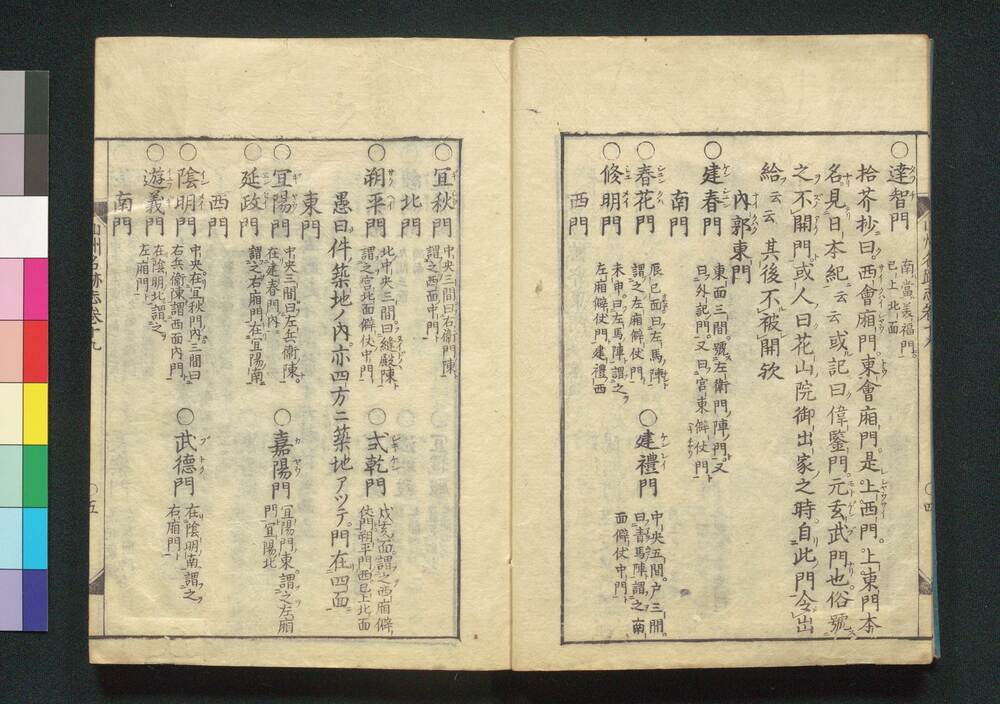 ○達智門 南當美福門
已上北面
拾芥抄曰西會廂門東會廂門是上西門上東門本
名見日本紀云云或記曰偉鑒門元玄武門也俗號
之不開門或人曰花山院御出家之時自此門令出
給云云其後不被開欤
內郭東門
○建春門 東面三間號左衛門陣門又
曰外記門又曰宮東僻仗門
南門
○春花門 辰巳面曰左馬陣
謂之左廂僻仗門
○建禮門 中央五間戸三間
曰青馬陣謂之南
面僻仗中門
○修明門 未申曰右馬陣謂之
右廂僻仗門建禮西
西門
山州名跡志卷十九
○四
○宜秋門 中央三間曰右衛門陣
謂之西面中門
北門
○朔平門 北中央三間曰縫殿陣
謂之宮北面僻仗中門
○式乾門 戌亥面謂之西廂僻
仗門朔平門西已上北面
愚曰件築地ノ內亦四方ニ築地アツテ門在四面
東門
○宣陽門 中央三間曰左兵衛陣
在建春門內
○嘉陽門 宣陽門東謂之左廂
門宣陽北
○延政門 謂之右廂門在宣陽南
西門
○陰明門 中央在宜秋門內三間曰
右兵衛陣謂西面內門
○武德門 在陰明南謂之
右廂門
○遊義門 在陰明北謂之
左廂門
南門
山州名跡志卷十九
○五